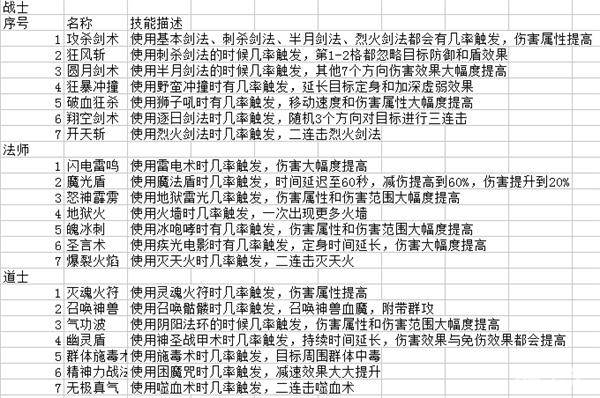 战士
序号 名称 技能描述
1 攻杀剑术 使用基本剑法、刺杀剑法、半月剑法、烈火剑法都会有几率触发，伤害属性提高
2 狂风斩 使用刺杀剑法的时候几率触发，第1-2格都忽略目标防御和盾效果
3 圆月剑术 使用半月剑法的时候几率触发，其他7个方向伤害效果大幅度提高
4 狂暴冲撞 使用野蛮冲撞时有几率触发，延长目标定身和加深虚弱效果
5 破血狂杀 使用狮子吼时有几率触发，移动速度和伤害属性大幅度提高
6 翔空剑术 使用逐日剑法时几率触发，随机3个方向对目标进行三连击
7 开天斩 使用烈火剑法时几率触发，二连击烈火剑法
法师
1 闪电雷鸣 使用雷电术时几率触发，伤害大幅度提高
2 魔光盾 使用魔法盾时几率触发，时间延迟至60秒，减伤提高到60%，伤害提升到20%
3 怒神霹雳 使用地狱雷光几率触发，伤害属性和伤害范围大幅度提高
4 地狱火 使用火墙时几率触发，一次出现更多火墙
5 魄冰刺 使用冰咆哮时有几率触发，伤害属性和伤害范围大幅度提高
6 圣言术 使用疾光电影时有几率触发，定身时间延长，伤害大幅度提高
7 爆裂火焰 使用灭天火时几率触发，二连击灭天火
道士
1 灭魂火符 使用灵魂火符时几率触发，伤害属性提高
2 召唤神兽 使用召唤骷髅时几率触发，召唤神兽血魔，附带群攻
3 气功波 使用阴阳法环的时候几率触发，伤害属性和伤害范围大幅度提高
4 幽灵盾 使用神圣战甲术时几率触发，持续时间延长，伤害效果与免伤效果都会提高
5 群体施毒术 使用施毒术时几率触发，目标周围群体中毒
6 精神力战法 使用困魔咒时几率触发，减速效果大大提升
7 无极真气 使用噬血术时几率触发，二连击噬血术